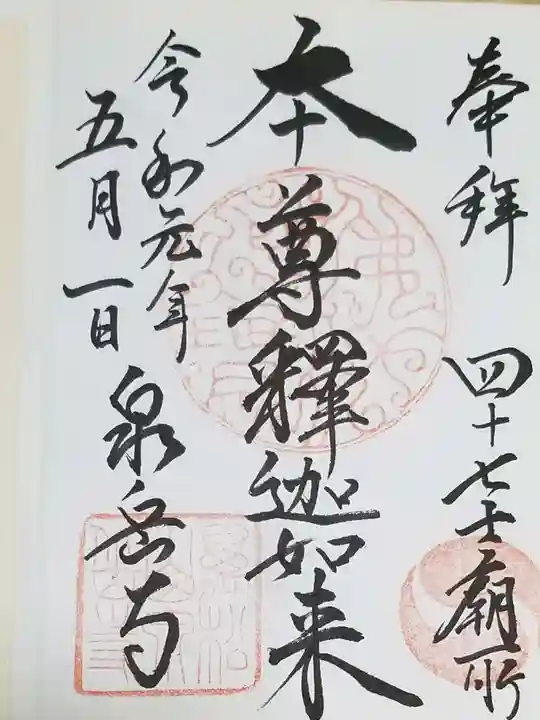 奉拝 四十七士廟所
本尊釋迦如来
令和元年
五月一日 泉岳寺